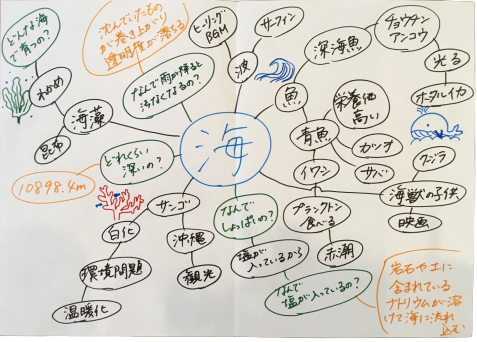 どんな海
で育つの?
沈んでいたもの
が巻き上がり
透明度が落ちる
ヒーリング
BGM
サーフィン
深海魚
チョウチン
アンコウ
わかめ
なんで雨が降ると
汚なくなるの?
波
魚
栄養価
高い
光る
ホタルイカ
海藻
昆布
海
青魚
カツオ
サバ
イワシ
クジラ
どれくらい
深いの?
10898.4m
サンゴ
なんで
しょっぱいの?
プランクトン
食べる
海獣の子供
映画
白化
沖縄
塩が
入っているから
赤潮
環境問題
観光
なんで
塩が入っているの?
温暖化
岩石や土に
含まれている
ナトリウムが溶
けて海に流れ
込む